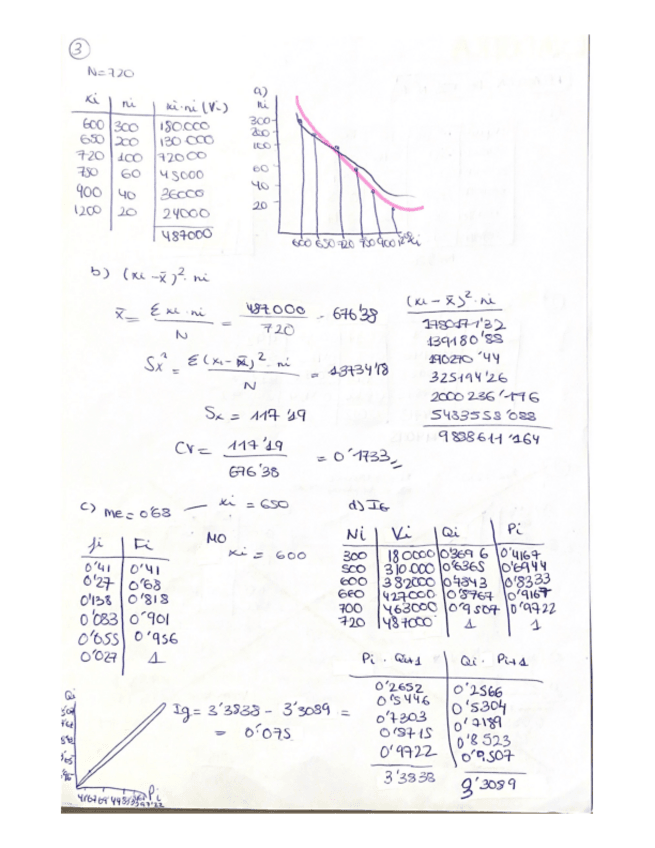 3
N=720
xi ni xi·ni (Vi)
600 300 180.000
650 200 130.000
720 100 72000
750 60 45000
900 40 36000
1200 20 24000
487000
a)
ni
300
200
100
60
40
20
600 650 720 750 900 1200 xi
b) (xi - x̄)²· ni
x̄ = Σ xi · ni / N = 487000 / 720 = 676'38
Sx² = Σ(xi - x̄)² · ni / N = 13734'18
Sx = 117'19
CV = 117'19 / 676'38 = 0'1733
(xi - x̄)²· ni
139180'88
190270'44
325194'26
2000236'1796
5433558'088
9838611'164
c) me = 0'68 — xi = 650
Mo
xi = 600
fi Fi
0'41 0'41
0'27 0'68
0'138 0'818
0'083 0'901
0'055 0'956
0'027 1
d) IG
Ni Vi Qi Pi
300 180000 0'3696 0'4167
500 310.000 0'6365 0'6944
600 382000 0'7843 0'8333
660 427000 0'8767 0'9167
700 463000 0'9507 0'9722
720 487000 1 1
Pi · Qi+1 Qi · Pi+1
0'2652 0'2566
0'5446 0'5304
0'7303 0'7189
0'8715 0'8523
0'9722 0'9507
3'3838 3'3089
Ig = 3'3838 - 3'3089 =
= 0'075
Qi
Pi